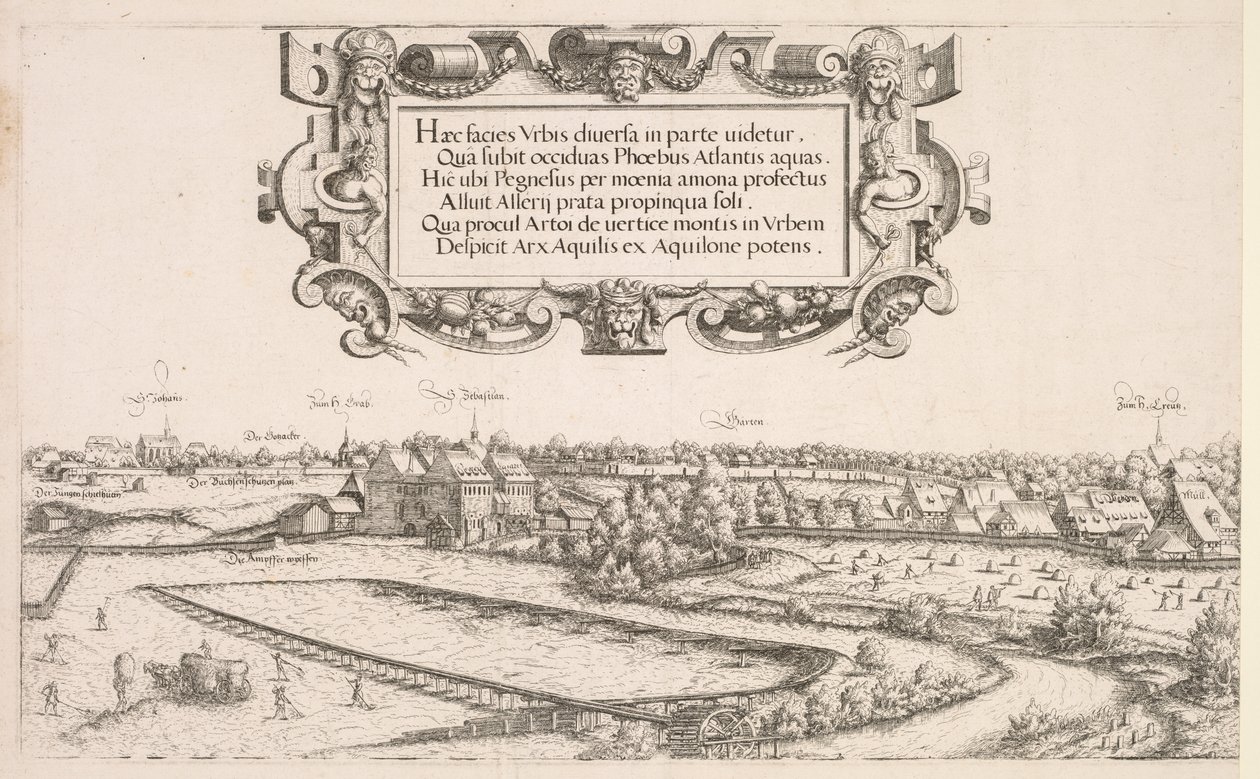 Hæc facies Vrbis diuersa in parte uidetur,
Quâ subit occiduas Phœbus Atlantis aquas.
Hîc ubi Pegnesus per mœnia amona profectus
Alluit Asserij prata propinqua soli.
Qua procul Artoi de uertice montis in Vrbem
Despicit Arx Aquilis ex Aquilone potens.
S. Johans.
Zum H. Grab.
S. Sebastian.
Gärten.
Zum H. Creutz.
Der Gotzacker.
Der Büchsenschützen plan.
Der Jungen schiesshütten
Müll.
Die Ampffer wissen.